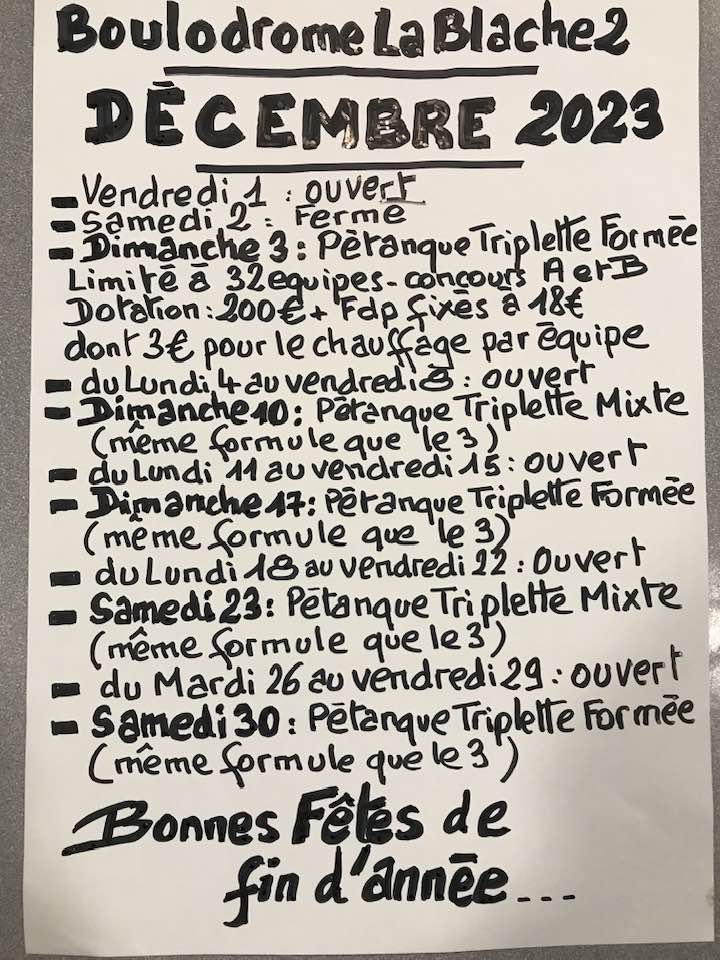 Boulodrome La Blache 2
DÉCEMBRE 2023
- Vendredi 1 : ouvert
- Samedi 2 : Fermé
- Dimanche 3 : Pétanque Triplette Formée
Limité à 32 equipes - concours A et B
Dotation : 200€ + Fdp fixés à 18€
dont 3€ pour le chauffage par équipe
- du Lundi 4 au vendredi 8 : ouvert
- Dimanche 10 : Pétanque Triplette Mixte
(même formule que le 3)
- du Lundi 11 au vendredi 15 : ouvert
- Dimanche 17 : Pétanque Triplette Formée
(même formule que le 3)
- du Lundi 18 au vendredi 22 : Ouvert
- Samedi 23 : Pétanque Triplette Mixte
(même formule que le 3)
- du Mardi 26 au vendredi 29 : ouvert
- Samedi 30 : Pétanque Triplette Formée
(même formule que le 3)
Bonnes Fêtes de
fin d'année...